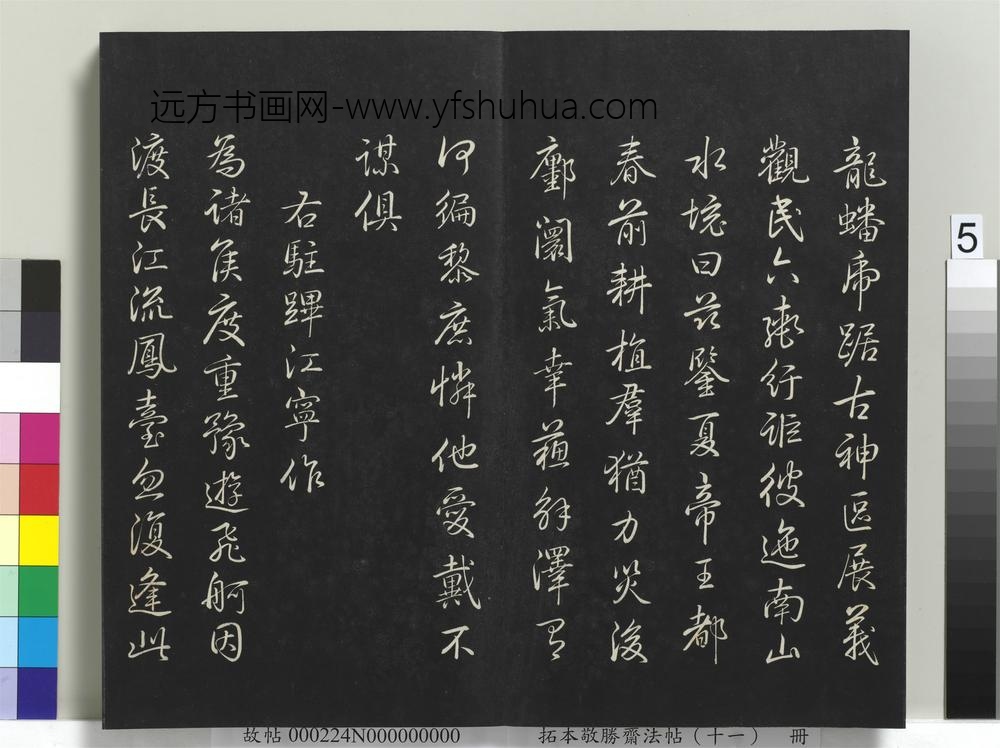 远方书画网-www.yfshuhua.com
龍蟠虎踞古神區展義
觀民六轡紆詎彼迤南山
水境曰茲鑒夏帝王都
春前耕植羣猶力災後
鄽闤氣幸蘓解澤有
何編黎庶憐他愛戴不
謀俱
右駐蹕江寧作
為諸侯度重豫遊飛舸因
渡長江流鳳臺忽復逢此
5
故帖000224N000000000
拓本敬勝齋法帖（十一） 冊